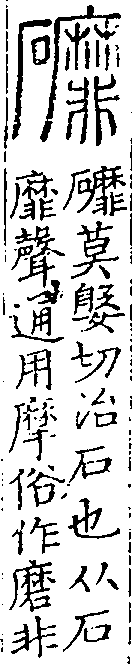 䃺
䃺莫媻切治石也从石
靡聲通用摩俗作磨非